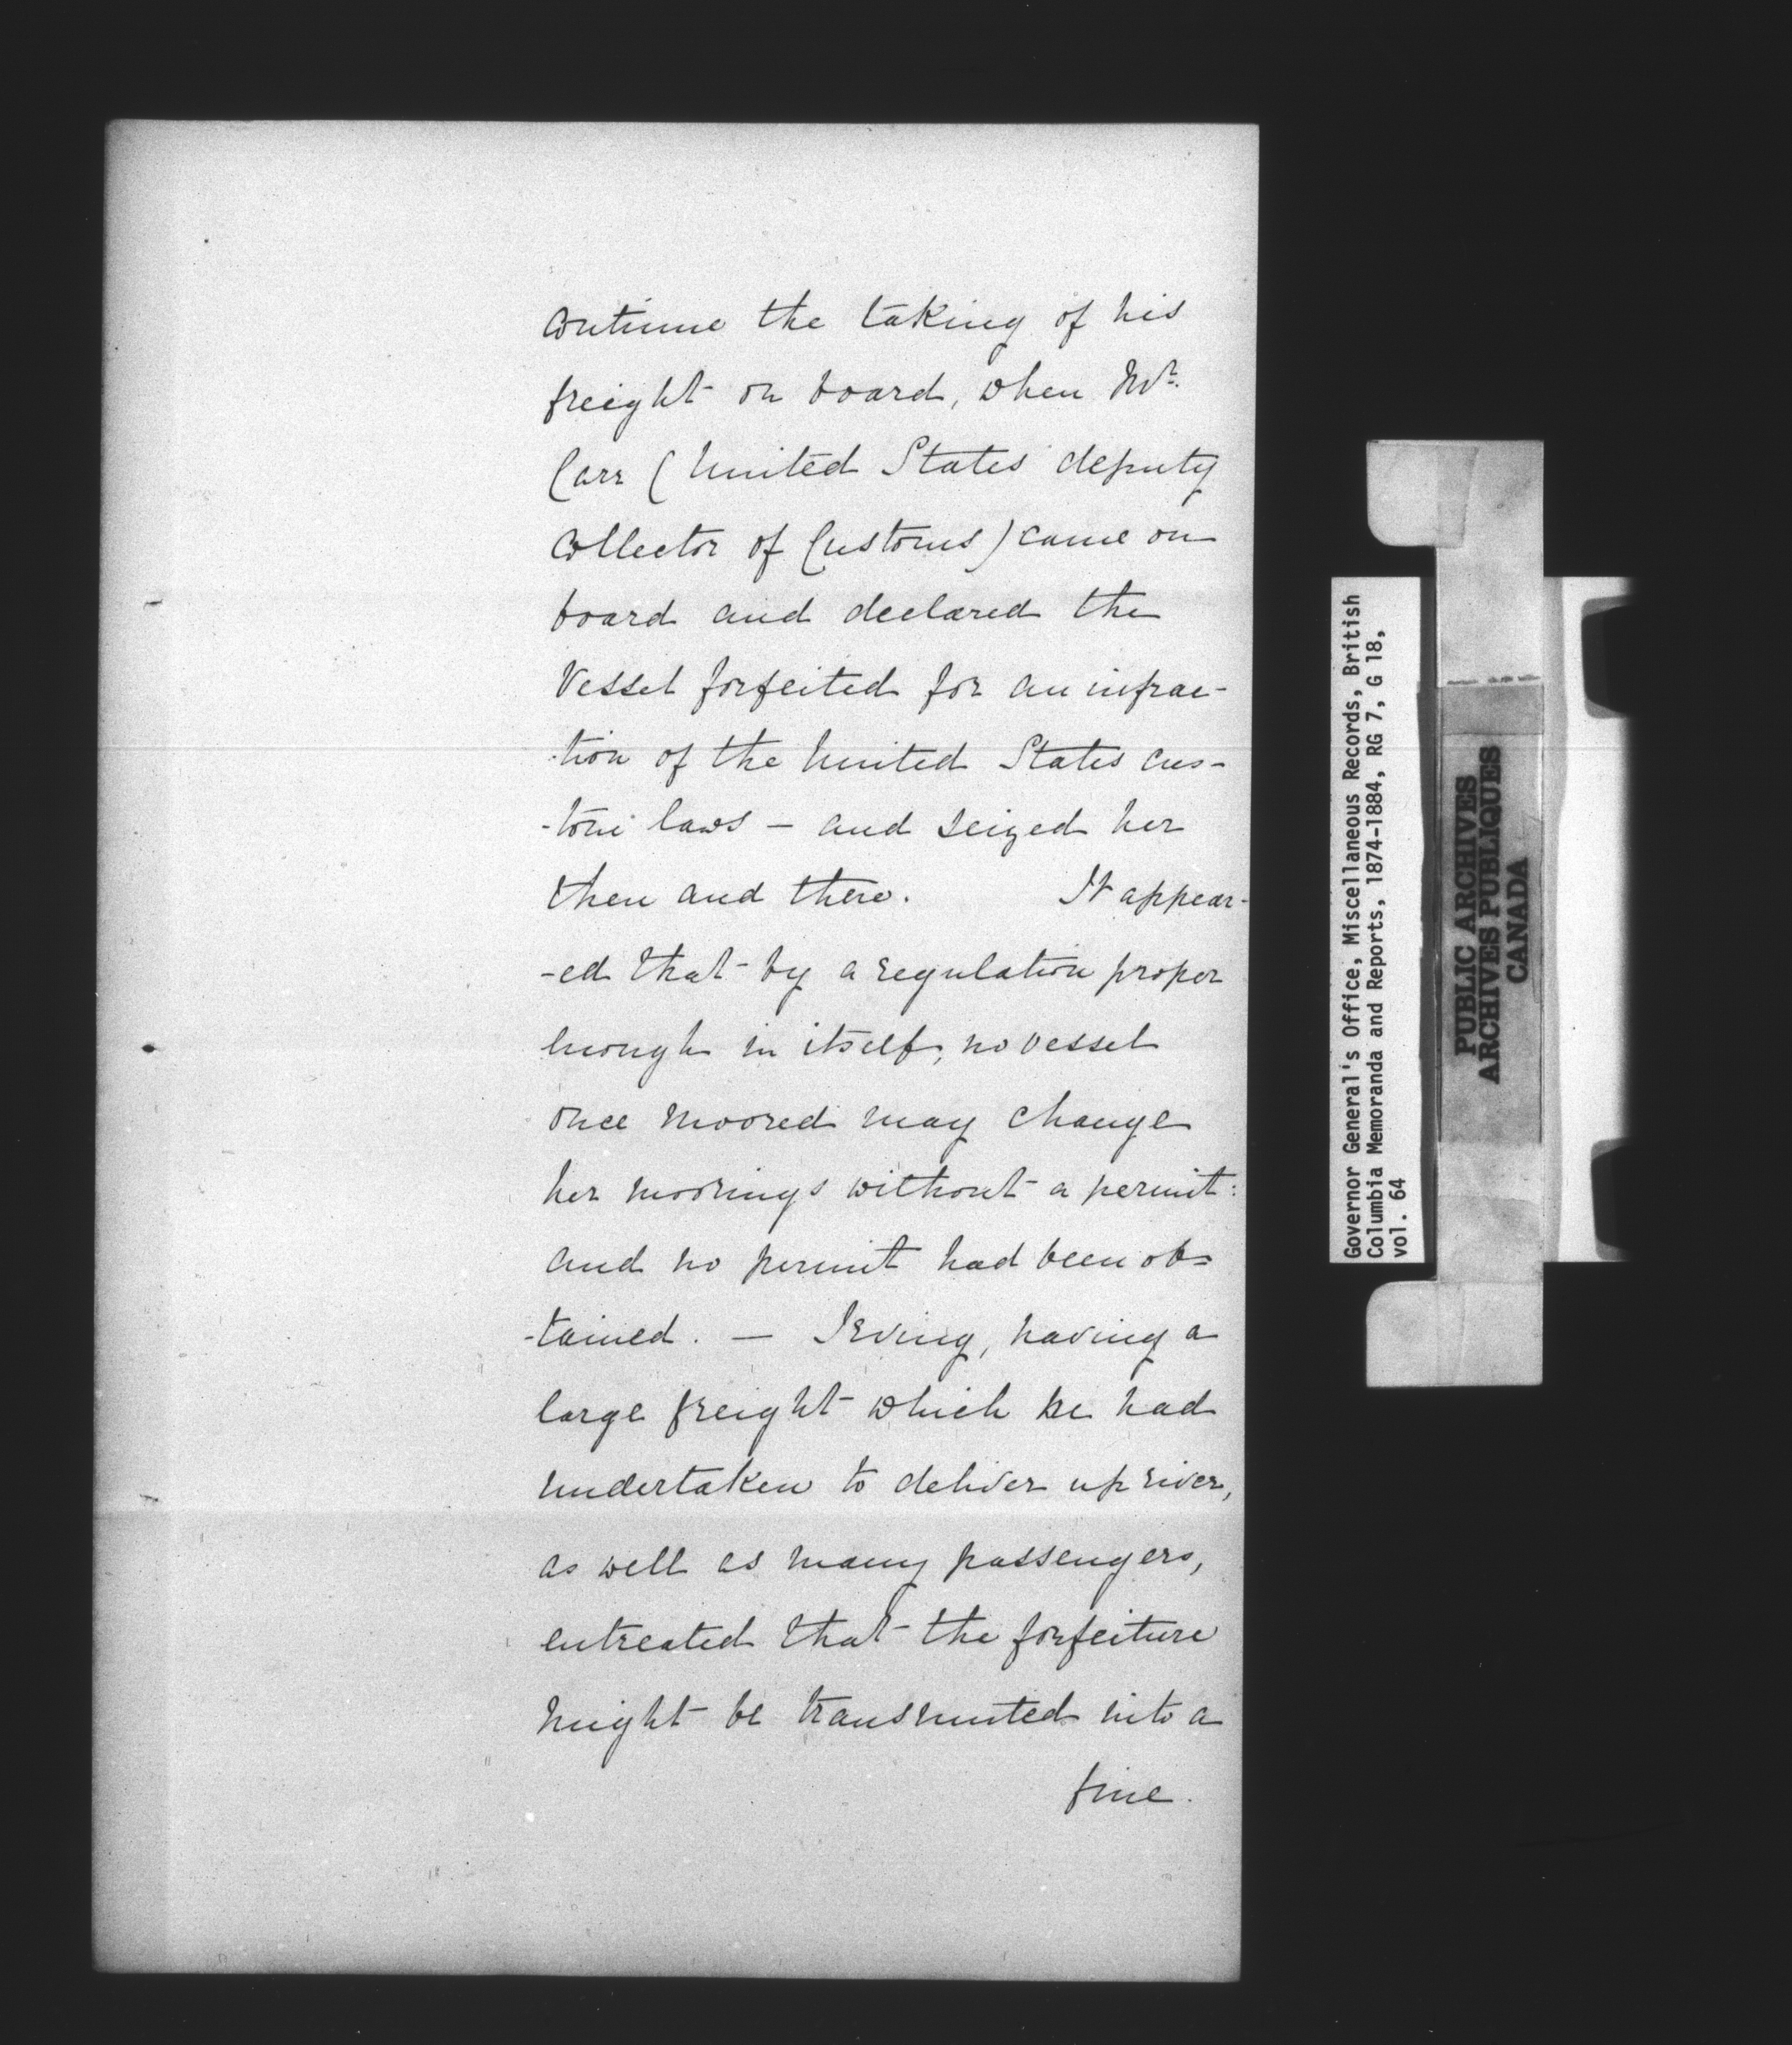 continue the taking of his
freight on board, when Mr.
Carr (United States deputy
Collector of Customs) came on
board and declared the
Vessel forfeited for an infrac-
-tion of the United States cus-
-tom laws — and seized her
then and there. It appear-
-ed that by a regulation proper
enough in itself, no vessel
once moored may change
her moorings without a permit:
and no permit had been ob-
-tained. — Irving, having a
large freight which he had
undertaken to deliver up river,
as well as many passengers,
entreated that the forfeiture
might be transmuted into a
fine.
Governor General's Office, Miscellaneous Records, British
Columbia Memoranda and Reports, 1874-1884, RG 7, G 18,
vol. 64
PUBLIC ARCHIVES
ARCHIVES PUBLIQUES
CANADA